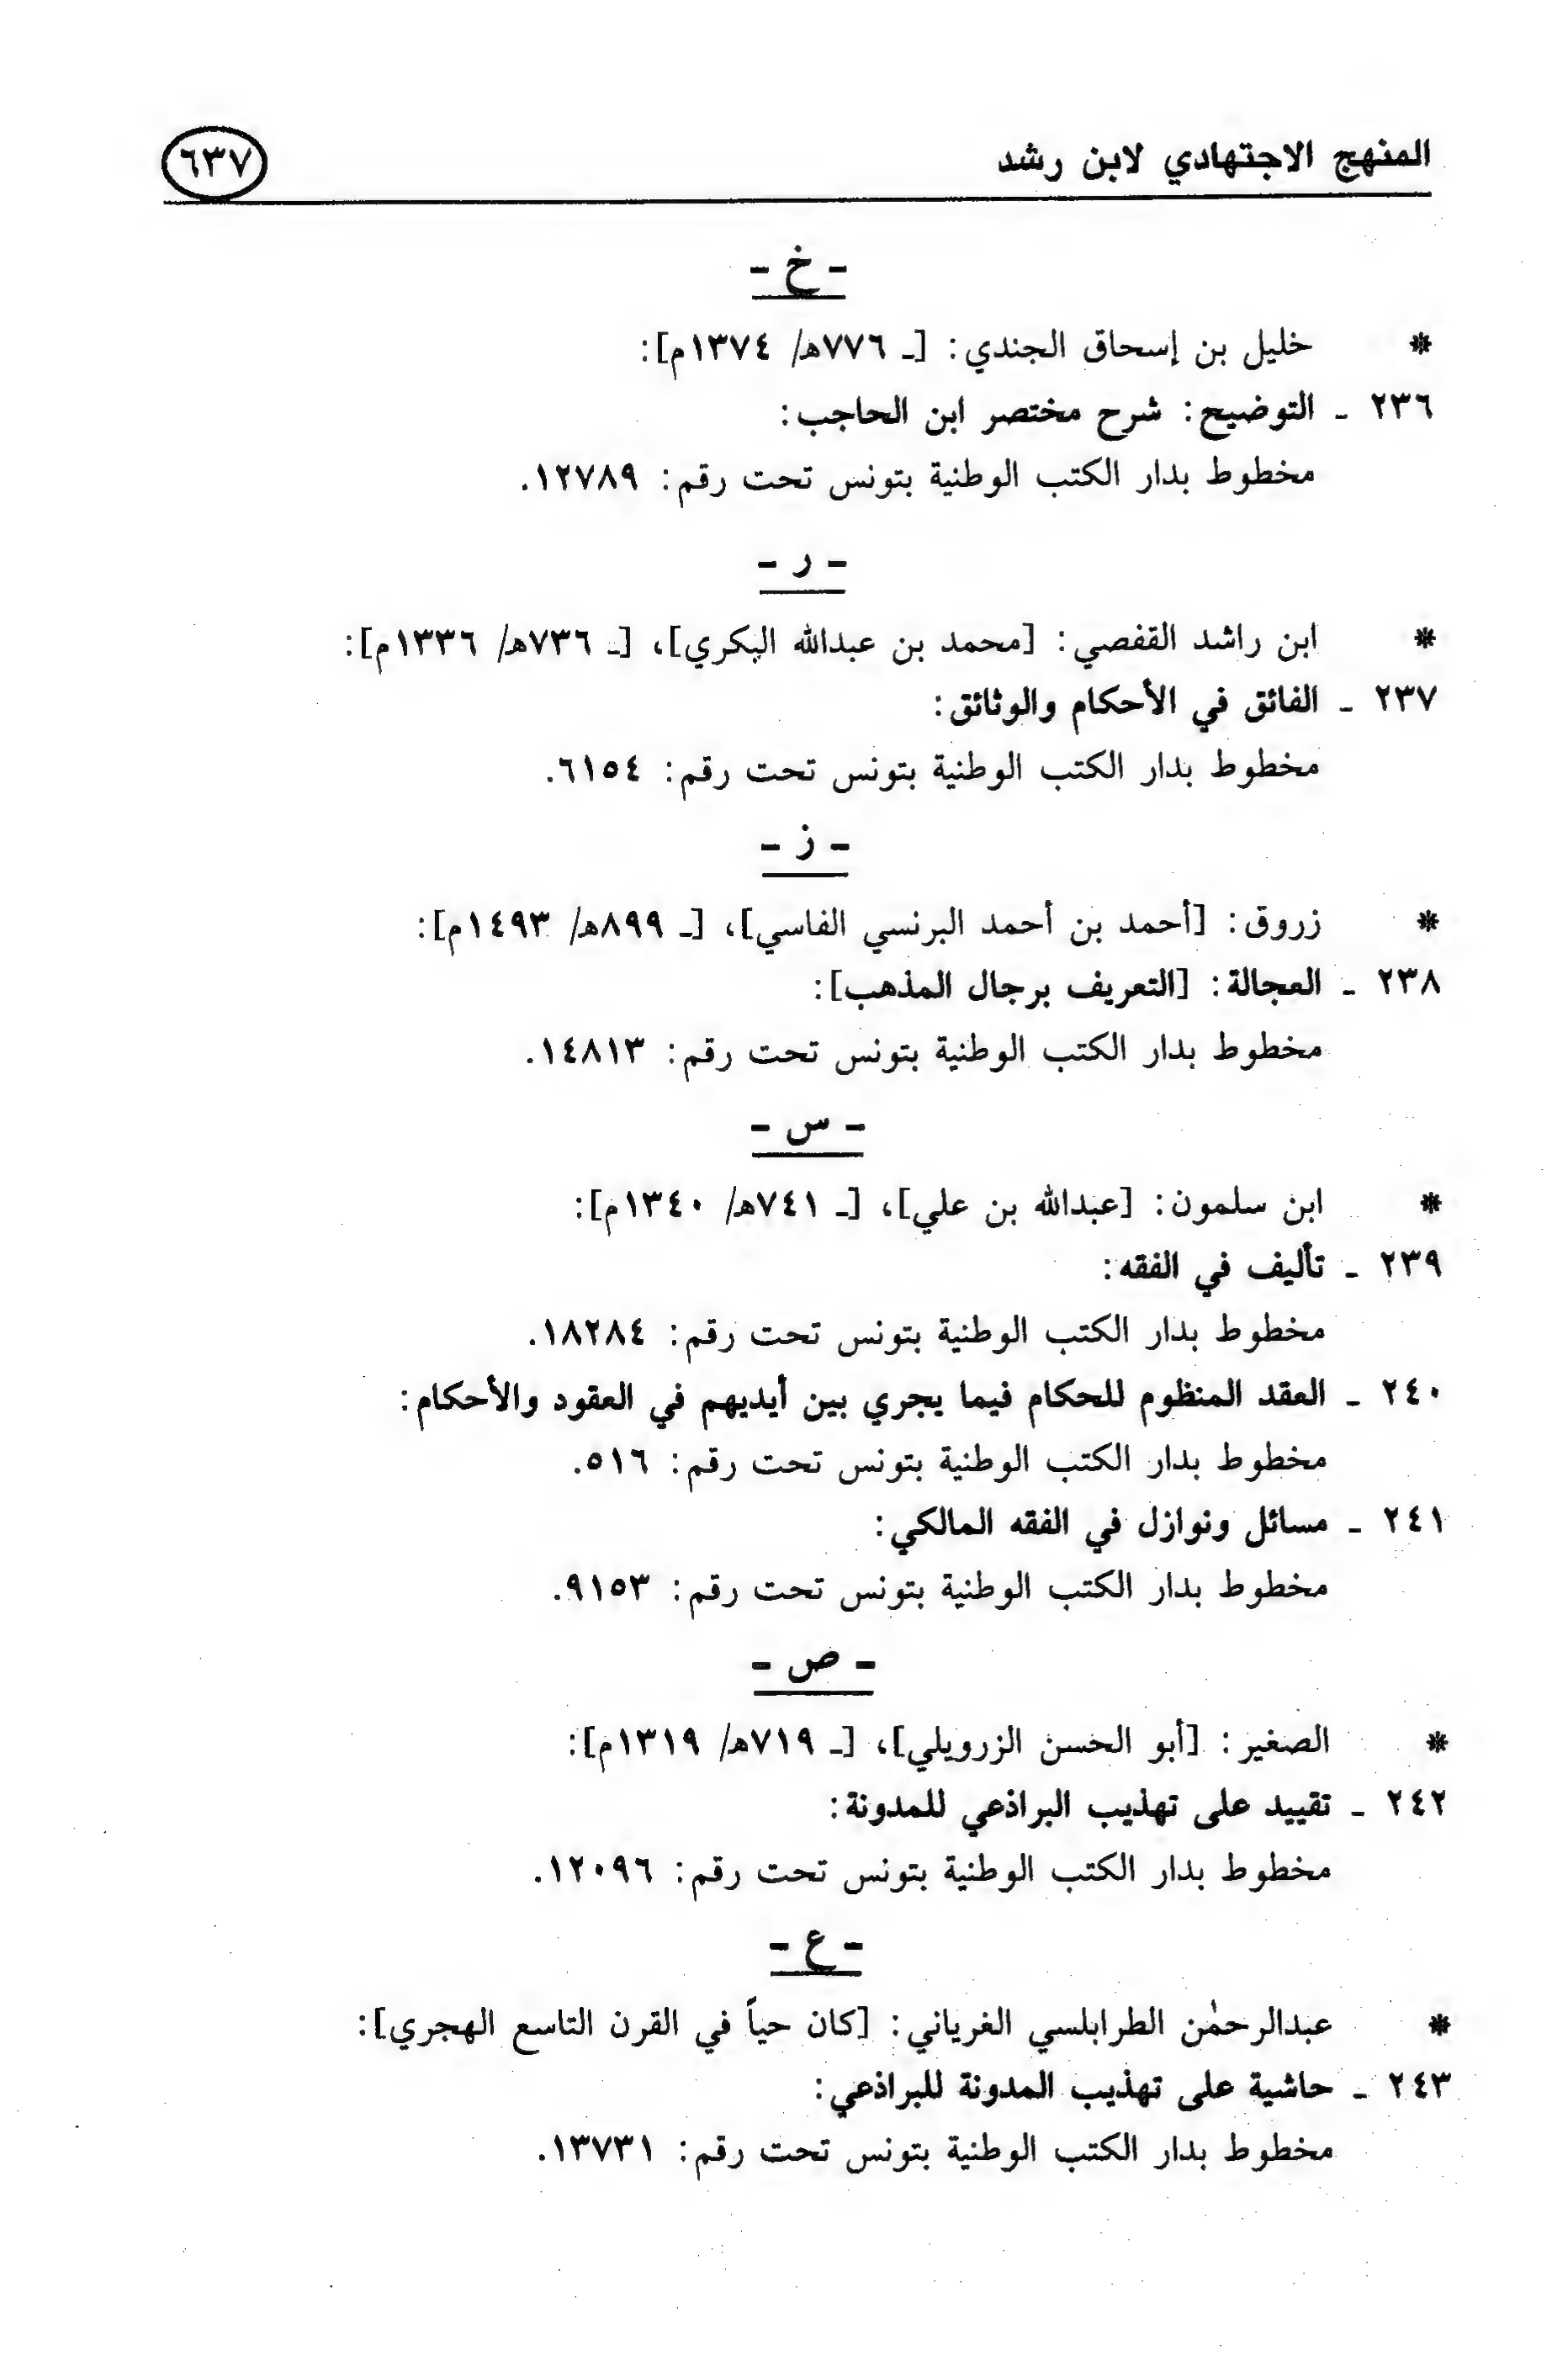 المنهج الاجتهادي لابن رشد ٦٣٧
- خ -
* خليل بن إسحاق الجندي: [ـ ٧٧٦هـ/ ١٣٧٤م]:
٢٣٦ ـ التوضيح: شرح مختصر ابن الحاجب:
مخطوط بدار الكتب الوطنية بتونس تحت رقم: ١٢٧٨٩.
- ر -
* ابن راشد القفصي: [محمد بن عبدالله البكري]، [ـ ٧٣٦هـ/ ١٣٣٦م]:
٢٣٧ ـ الفائق في الأحكام والوثائق:
مخطوط بدار الكتب الوطنية بتونس تحت رقم: ٦١٥٤.
- ز -
* زروق: [أحمد بن أحمد البرنسي الفاسي]، [ـ ٨٩٩هـ/ ١٤٩٣م]:
٢٣٨ ـ العجالة: [التعريف برجال المذهب]:
مخطوط بدار الكتب الوطنية بتونس تحت رقم: ١٤٨١٣.
- س -
* ابن سلمون: [عبدالله بن علي]، [ـ ٧٤١هـ/ ١٣٤٠م]:
٢٣٩ ـ تأليف في الفقه:
مخطوط بدار الكتب الوطنية بتونس تحت رقم: ١٨٢٨٤.
٢٤٠ ـ العقد المنظوم للحكام فيما يجري بين أيديهم في العقود والأحكام:
مخطوط بدار الكتب الوطنية بتونس تحت رقم: ٥١٦.
٢٤١ ـ مسائل ونوازل في الفقه المالكي:
مخطوط بدار الكتب الوطنية بتونس تحت رقم: ٩١٥٣.
- ص -
* الصغير: [أبو الحسن الزرويلي]، [ـ ٧١٩هـ/ ١٣١٩م]:
٢٤٢ ـ تقييد على تهذيب البراذعي للمدونة:
مخطوط بدار الكتب الوطنية بتونس تحت رقم: ١٢٠٩٦.
- ع -
* عبدالرحمٰن الطرابلسي الغرياني: [كان حياً في القرن التاسع الهجري]:
٢٤٣ ـ حاشية على تهذيب المدونة للبراذعي:
مخطوط بدار الكتب الوطنية بتونس تحت رقم: ١٣٧٣١.